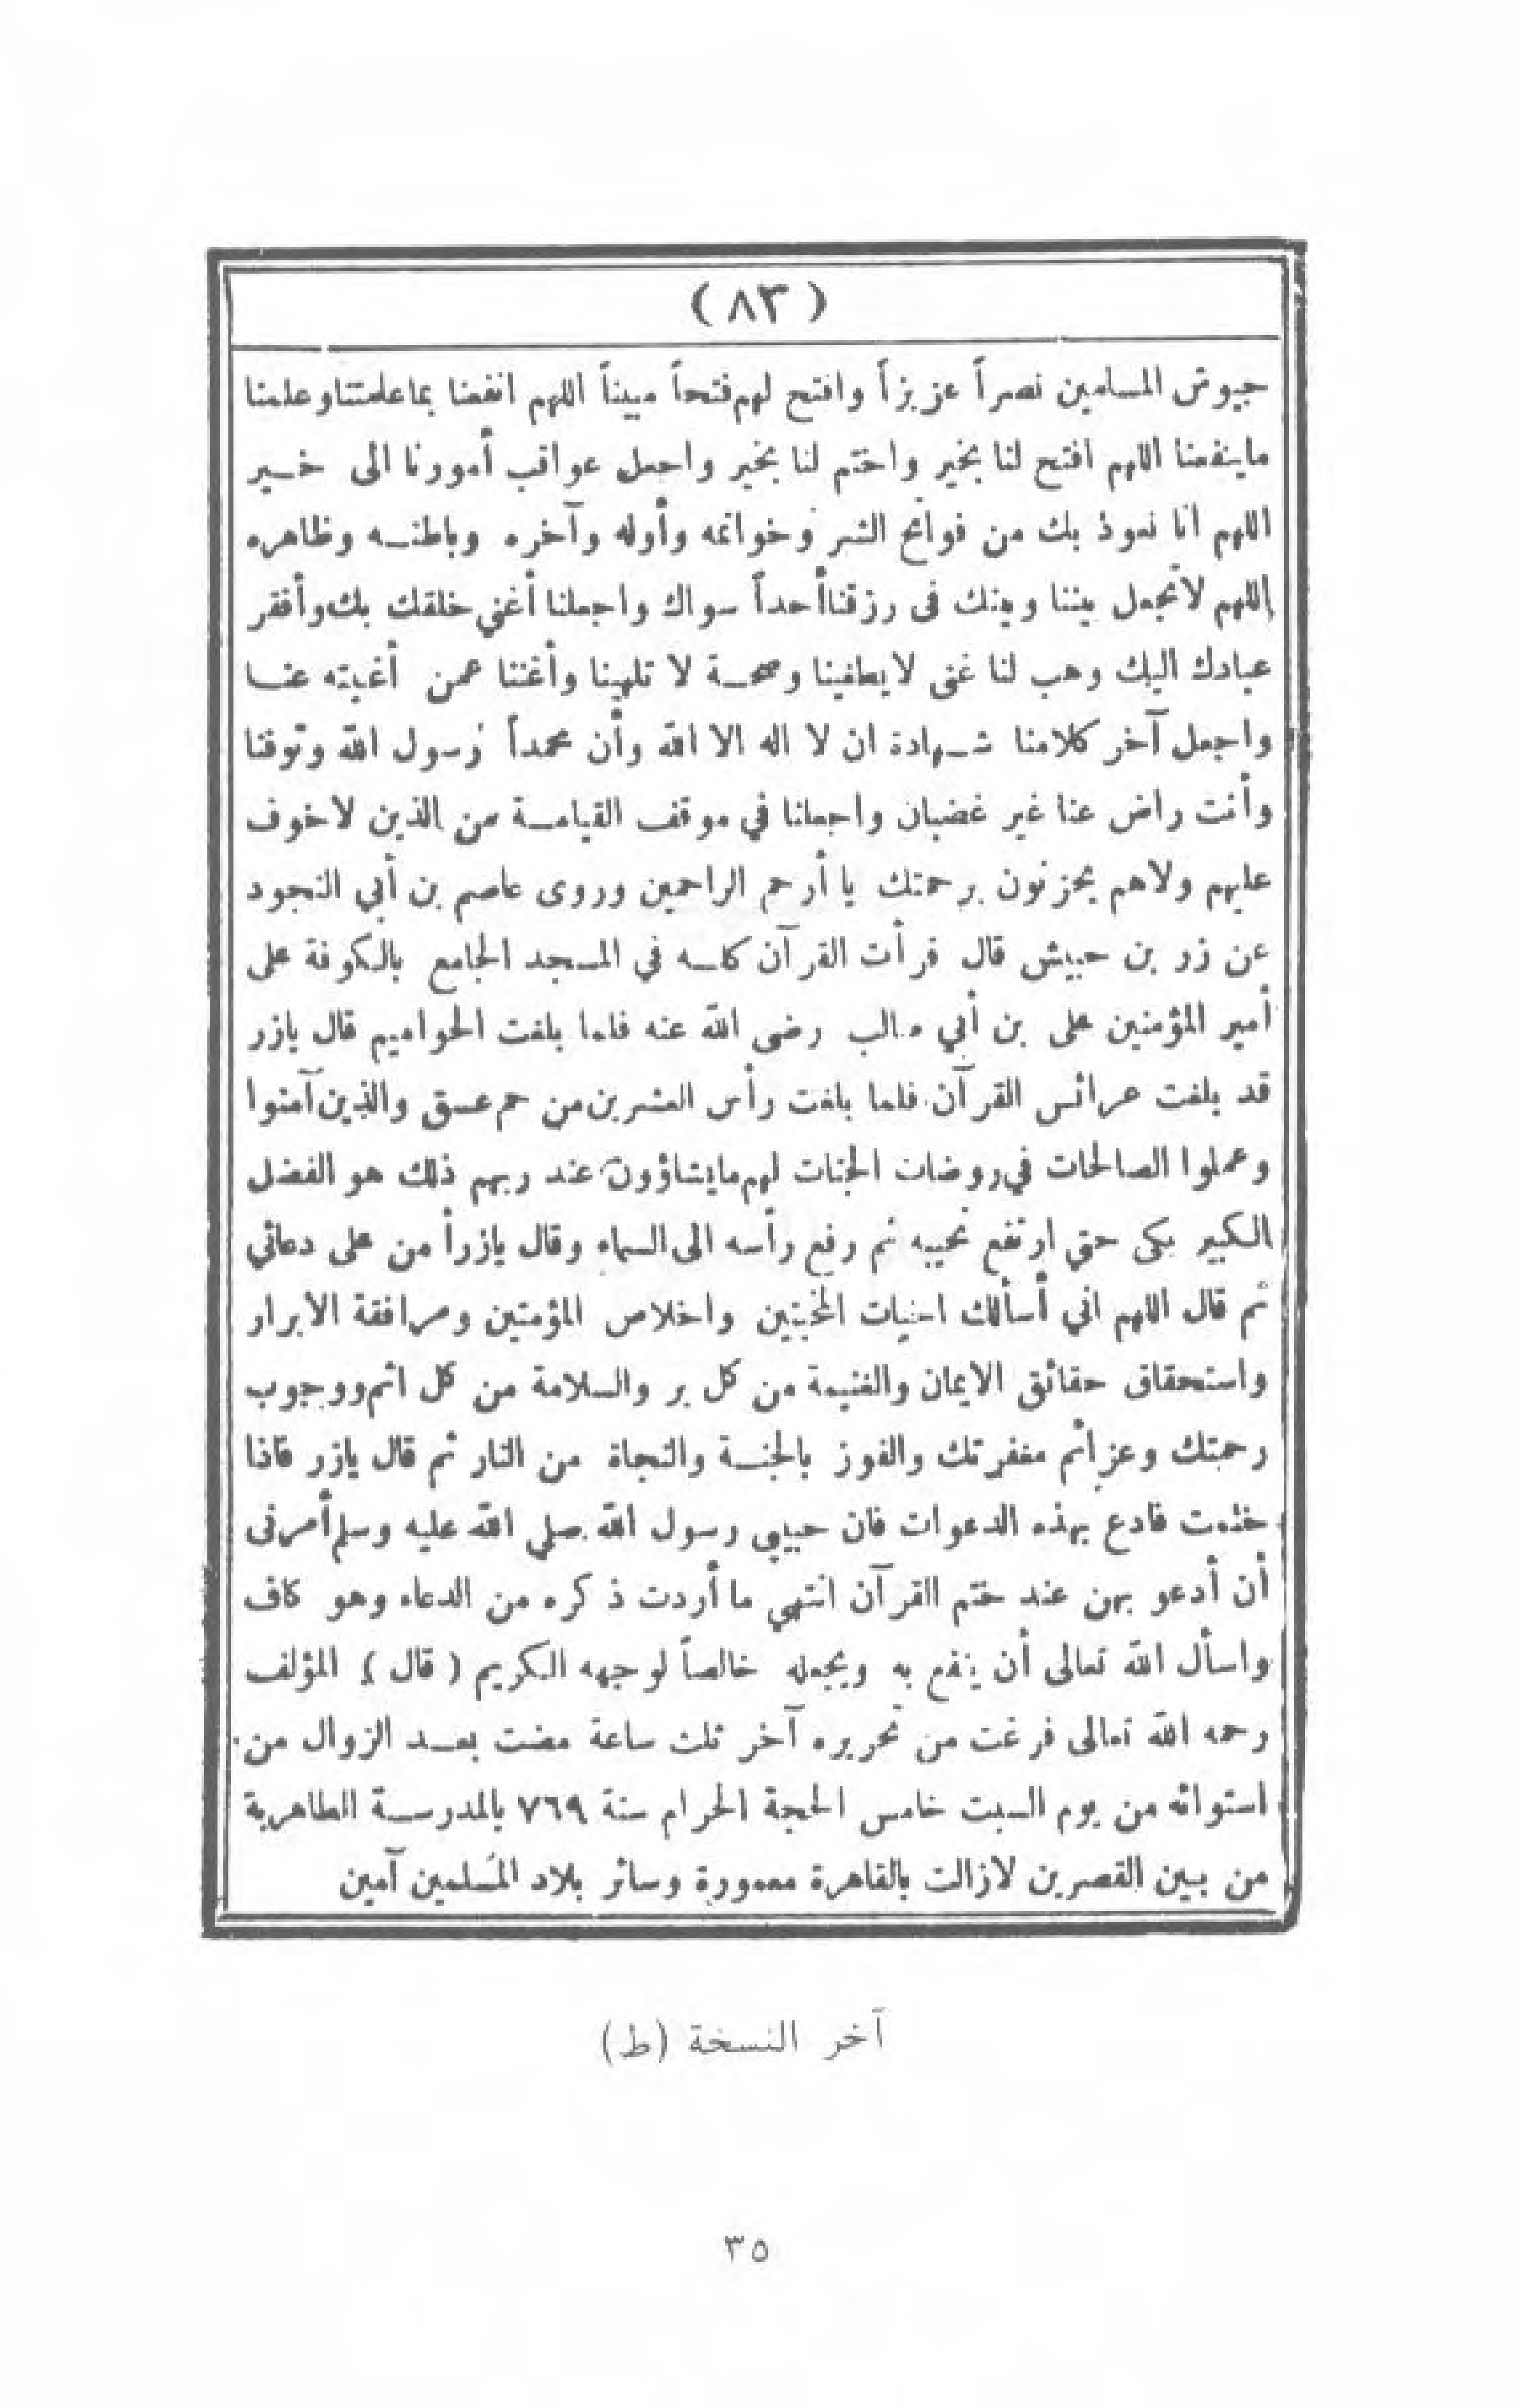 (٨٣)
جيوش المسلمين نصراً عزيزاً وافتح لهم فتحاً مبيناً اللهم انفعنا بما علمتنا وعلمنا
ماينفعنا اللهم افتح لنا بخير واختم لنا بخير واجعل عواقب أمورنا الى خير
اللهم انا نعوذ بك من فواتح الشر وخواتمه وأوله وآخره وباطنه وظاهره
اللهم لاتجعل بيننا وبينك فى رزقنا أحداً سواك واجعلنا أغني خلقك بك وأفقر
عبادك اليك وهب لنا غنى لايطغينا وصحة لا تلهينا وأغننا عمن أغنيته عنا
واجعل آخر كلامنا شهادة ان لا اله الا الله وأن محمداً رسول الله وتوفنا
وأنت راض عنا غير غضبان واجعلنا في موقف القيامة من الذين لاخوف
عليهم ولاهم يحزنون برحمتك يا أرحم الراحمين وروى عاصم بن أبي النجود
عن زر بن حبيش قال قرأت القرآن كله في المسجد الجامع بالكوفة على
أمير المؤمنين على بن أبي طالب رضى الله عنه فلما بلغت الحواميم قال يازر
قد بلغت عرائس القرآن فلما بلغت رأس العشرين من حم عسق والذين آمنوا
وعملوا الصالحات في روضات الجنات لهم مايشاؤون عند ربهم ذلك هو الفضل
الكبير بكى حتى ارتفع نحيبه ثم رفع رأسه الى السماء وقال يازر أمن على دعائي
ثم قال اللهم اني أسألك اخبات المخبتين واخلاص المؤمتين ومرافقة الابرار
واستحقاق حقائق الايمان والغنيمة من كل بر والسلامة من كل اثم ووجوب
رحمتك وعزائم مغفرتك والفوز بالجنة والنجاة من النار ثم قال يازر فاذا
ختمت فادع بهذه الدعوات فان حبيبي رسول الله صلي الله عليه وسلم أمرنى
أن أدعو بهن عند ختم القرآن انتهي ما أردت ذكره من الدعاء وهو كاف
واسأل الله تعالى أن ينفع به ويجعله خالصاً لوجهه الكريم (قال) المؤلف
رحمه الله تعالى فرغت من تحريره آخر ثلث ساعة مضت بعد الزوال من
استوائه من يوم السبت خامس الحجة الحرام سنة ٧٦٩ بالمدرسة الطاهرية
من بين القصرين لازالت بالقاهرة معمورة وسائر بلاد المسلمين آمين
آخر النسخة (ط)
٣٥